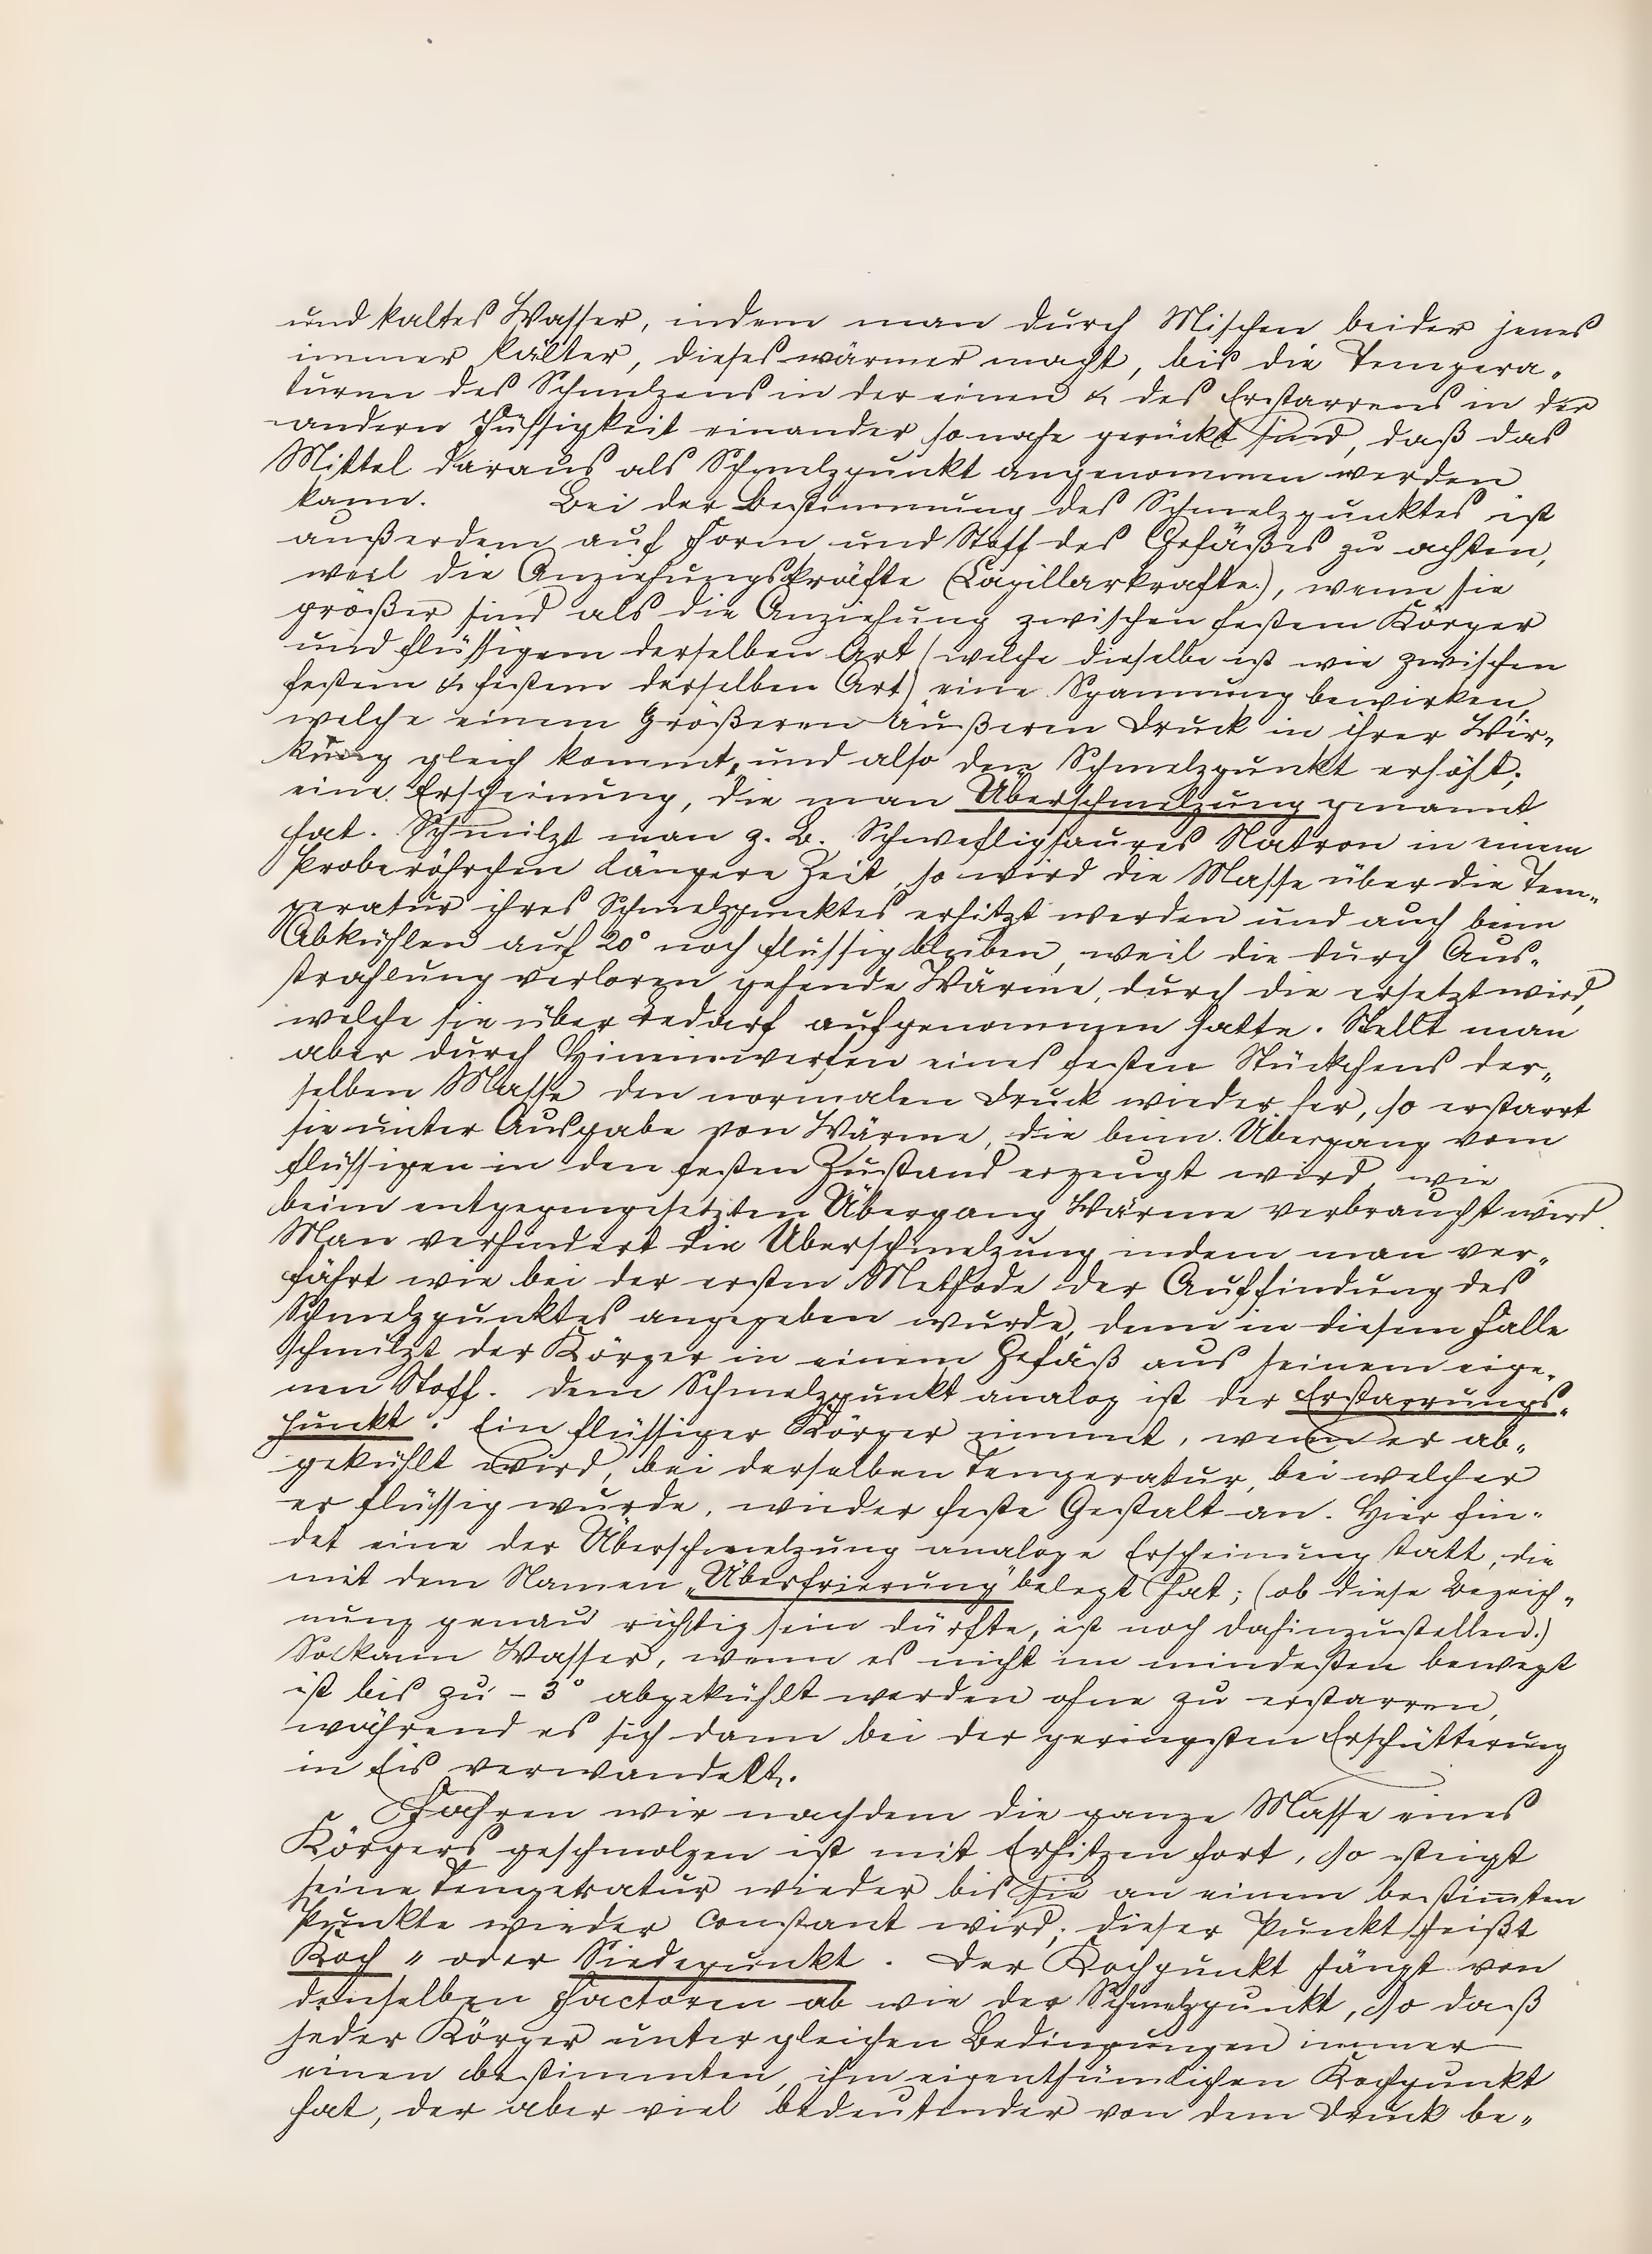 und kaltes Wasser, indem man durch Mischen beider jenes
immer kälter, dieses wärmer macht, bis die Tempera-
turen des Schmelzens in der einen & des Erstarrens in der
andern Füssigkeit einander so nahe gerückt sind, daß das
Mittel daraus als Schmelzpunkt angenommen werden
kann. Bei der Bestimmung des Schmelzpunktes ist
außerdem auf Form und Stoff des Gefäßes zu achten,
weil die Anziehungskräfte (Capillarkrafte), wenn sie
größer sind als die Anziehung zwischen festem Körper
und flüssigem derselben Art (welche dieselbe ist wie zwischen
festem & festem derselben Art) eine Spannung bewirken,
welche einem Größeren äußeren Druck in ihrer Wir-
kung gleich kommt, und also den Schmelzpunkt erhöht;
eine Erscheinung, die man Überschmelzung genannt
hat. Schmilzt man z. B. Schwefligsaures Natron in einem
Proberöhrchen längere Zeit, so wird die Masse über die Tem-
peratur ihres Schmelzpunktes erhitzt werden und auch beim
Abkühlen auf 20° noch flüssig bleiben, weil die durch Aus-
strahlung verloren gehende Wärme, durch die ersetzt wird,
welche sie über Bedarf aufgenommen hatte. Stellt man
aber durch Hineinwerfen eines festen Stückchens der-
selben Masse den normalen Druck wieder her, so erstarrt
sie unter Ausgabe von Wärme, die beim Übergang vom
flüssigen in den festen Zustand erzeugt wird, wie
beim entgegengesetzten Übergang Wärme verbraucht wird.
Man verhindert die Überschmelzung indem man ver-
fährt wie bei der ersten Methode der Auffindung des
Schmelzpunktes angegeben wurde, denn in diesem Falle
schmilzt der Körper in einem Gefäß aus seinem eige-
nen Stoff. Dem Schmelzpunkt analog ist der Erstarrungs-
punkt. Ein flüssiger Körper nimmt, wenn er ab-
gekühlt wird, bei derselben Temperatur, bei welcher
er flüssig wurde, wieder feste Gestalt an. Hier fin-
det eine der Überschmelzung analoge Erscheinung statt, die
mit dem Namen „Überfrierung" belegt hat; (ob diese Bezeich-
nung genau richtig sein dürfte, ist noch dahinzustellen.)
So kann Wasser, wenn es nicht im mindesten bewegt
ist bis zu -3° abgekühlt werden ohne zu erstarren,
während es sich dann bei der geringsten Erschütterung
in Eis verwandelt.
Fahren wir nachdem die ganze Masse eines
Körpers geschmolzen ist mit Erhitzen fort, so steigt
seine Temperatur wieder bis sie an einem bestimmten
Punkte wieder constant wird; dieser Punkt heißt
Koch- oder Siedepunkt. Der Kochpunkt hängt von
denselben Factoren ab wie der Schmelzpunkt, so daß
jeder Körper unter gleichen Bedingungen immer
einen bestimmten, ihm eigenthümlichen Kochpunkt
hat, der aber viel bedeutender von dem Druck be-